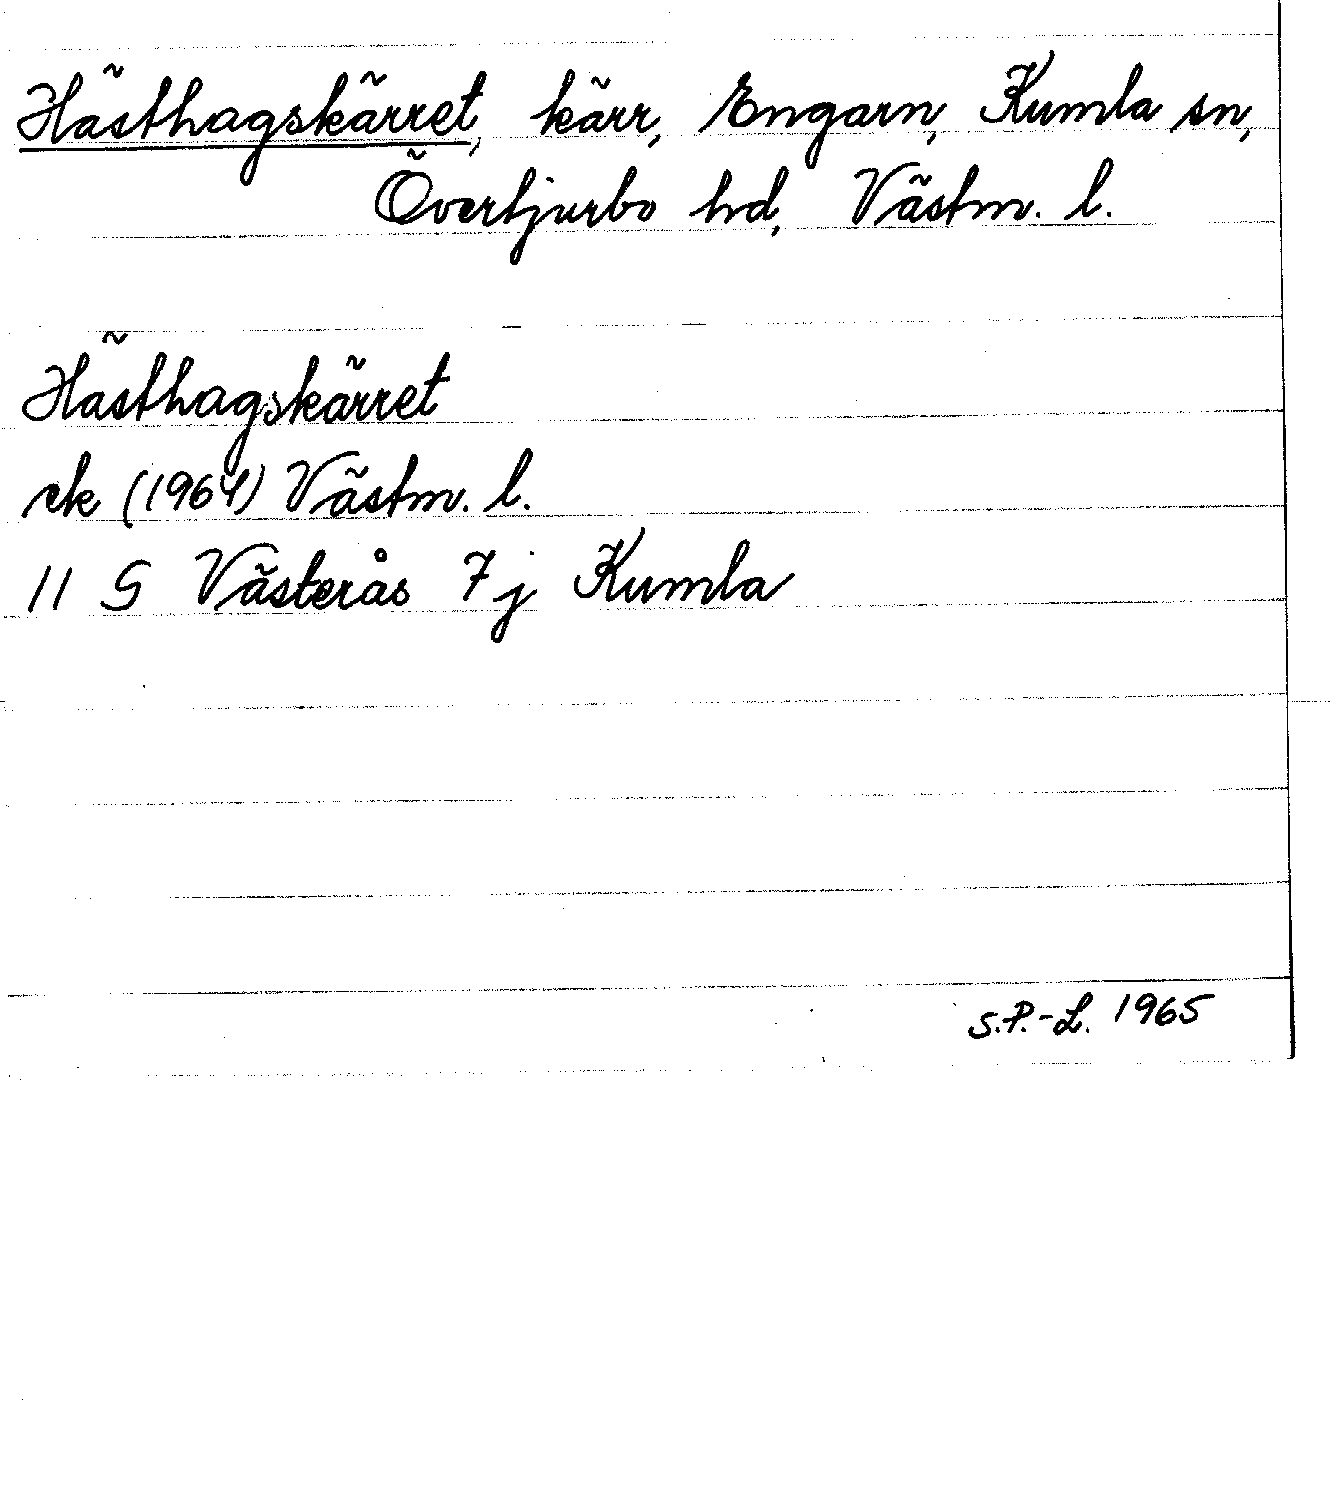 Hästhagskärret, kärr, Engarn, Kumla sn,
Övertjurbo hd, Västm. l.
Hästhagskärret
ek (1964) Västm. l.
11 G Västerås 7j Kumla
S.P.-L. 1965